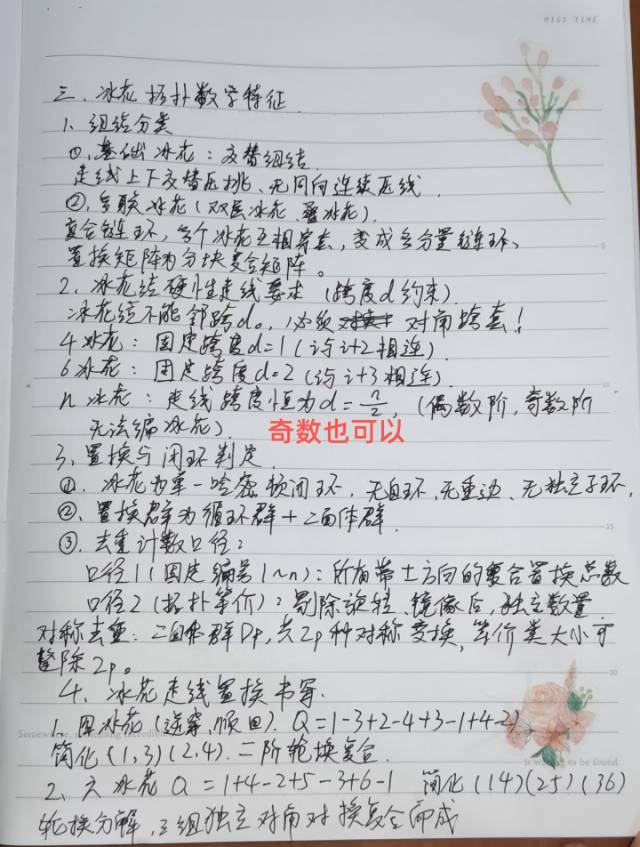 MISS TIME
三、冰花拓扑数学特征
1、组结分类
①、基础冰花：交替组结.
走线上下交替压挑、无同向连续压线.
②、多联冰花（双层冰花、叠冰花）.
复合链环，多个冰花互相穿套，变成多分量链环、
置换矩阵为分块复合矩阵。
2、冰花结硬性走线要求（跨度d约束）
冰花结不能邻跨d。必须对角跨套！
4冰花：固定跨度d=1（i与i+2相连）
6冰花：固定跨度d=2（i与i+3相连）
n冰花：走线跨度恒为d=n/2，（偶数阶，奇数阶
无法编冰花）
奇数也可以
3、置换与闭环判定
①．冰花为单一哈密顿闭环，无自环、无重边、无独立子环，
②、置换群为循环群+二面体群
③、去重计数口径：
口径1（固定编号1~n）：所有带士方向的复合置换总数
口径2（拓扑等价）：剔除旋转、镜像后，独立数量
对称去重：二面体群Dp，共2p种对称变换，等价类大小可
整除2p。
4、冰花走线置换书写.
1、四冰花（逆穿，顺回）．Q=1-3+2-4+3-1+4-2)
Somewhere,
is waiting to be found.
简化(1,3)(2,4).二阶轮换复合.
2、六冰花Q=1+4-2+5-3+6-1 简化(14)(25)(36)
轮换分解，三组独立对角对换复合而成